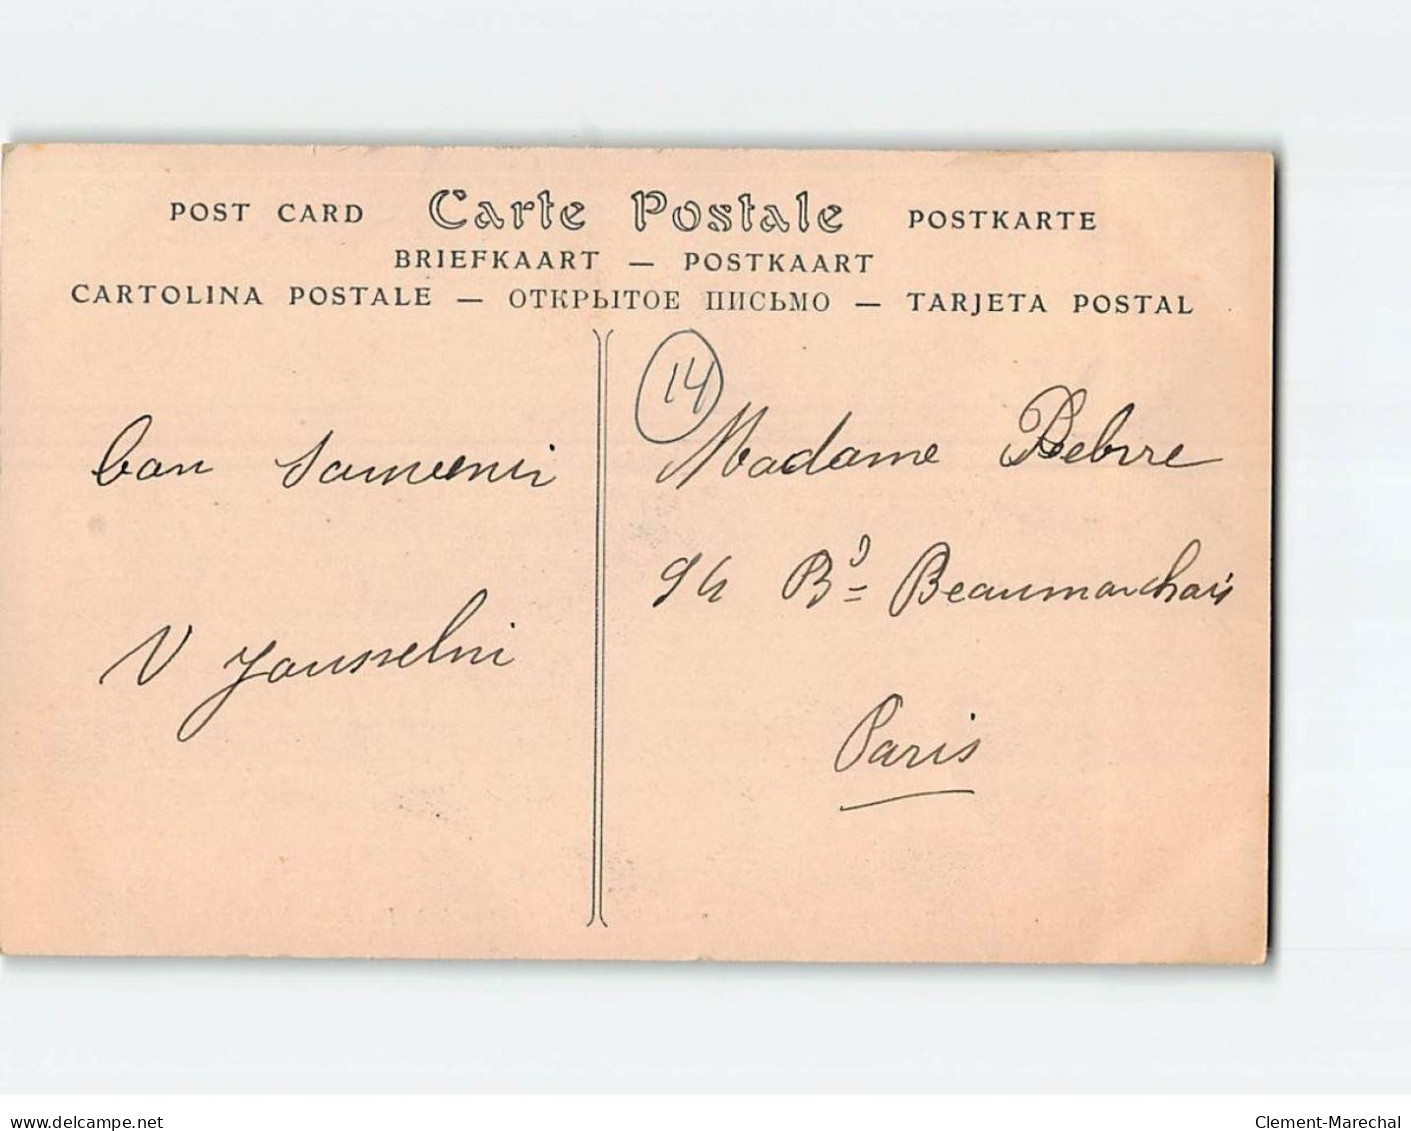 POST CARD Carte Postale POSTKARTE
BRIEFKAART — POSTKAART
CARTOLINA POSTALE — ОТКРЫТОЕ ПИСЬМО — TARJETA POSTAL
14
bon souvenir
V
Madame
94 Bd Beaumarchais
Paris
delcampe.net
Clement-Marechal